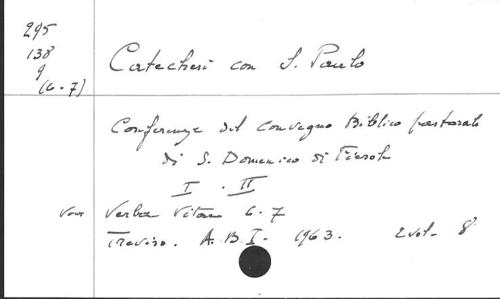 295
138
9
(6-7)
Catechesi con S. Paolo
Conferenze del Convegno Biblico pastorale
di S. Domenico di Fiesole
I - II
Verba Vitae 6-7
Treviso. A.B.I. 1963. 2 vol. 8°